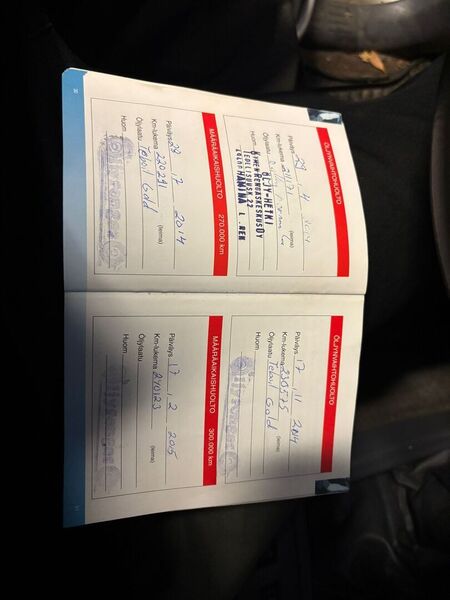 ÖLJYNVAIHTOHUOLTO
Päiväys 29 . 4 2014
Km-lukema 211171
(leima)
Öljylaatu
ÖLJY-HETKI
KYMEN RENGASKESKUS OY
TEOLLISUUST. 22
HAMINA
Huom.
MÄÄRÄAIKAISHUOLTO 270.000 km
Päiväys 29 . 7 . 2014
Km-lukema 220291
(leima)
Öljylaatu Teboil Gold
Huom.
30
ÖLJYNVAIHTOHUOLTO
Päiväys 17 . 11 2014
Km-lukema 230575
(leima)
Öljylaatu Teboil Gold
Huom.
MÄÄRÄAIKAISHUOLTO 300.000 km
Päiväys 17 . 2 . 2015
Km-lukema 240123
(leima)
Öljylaatu
Huom.
31